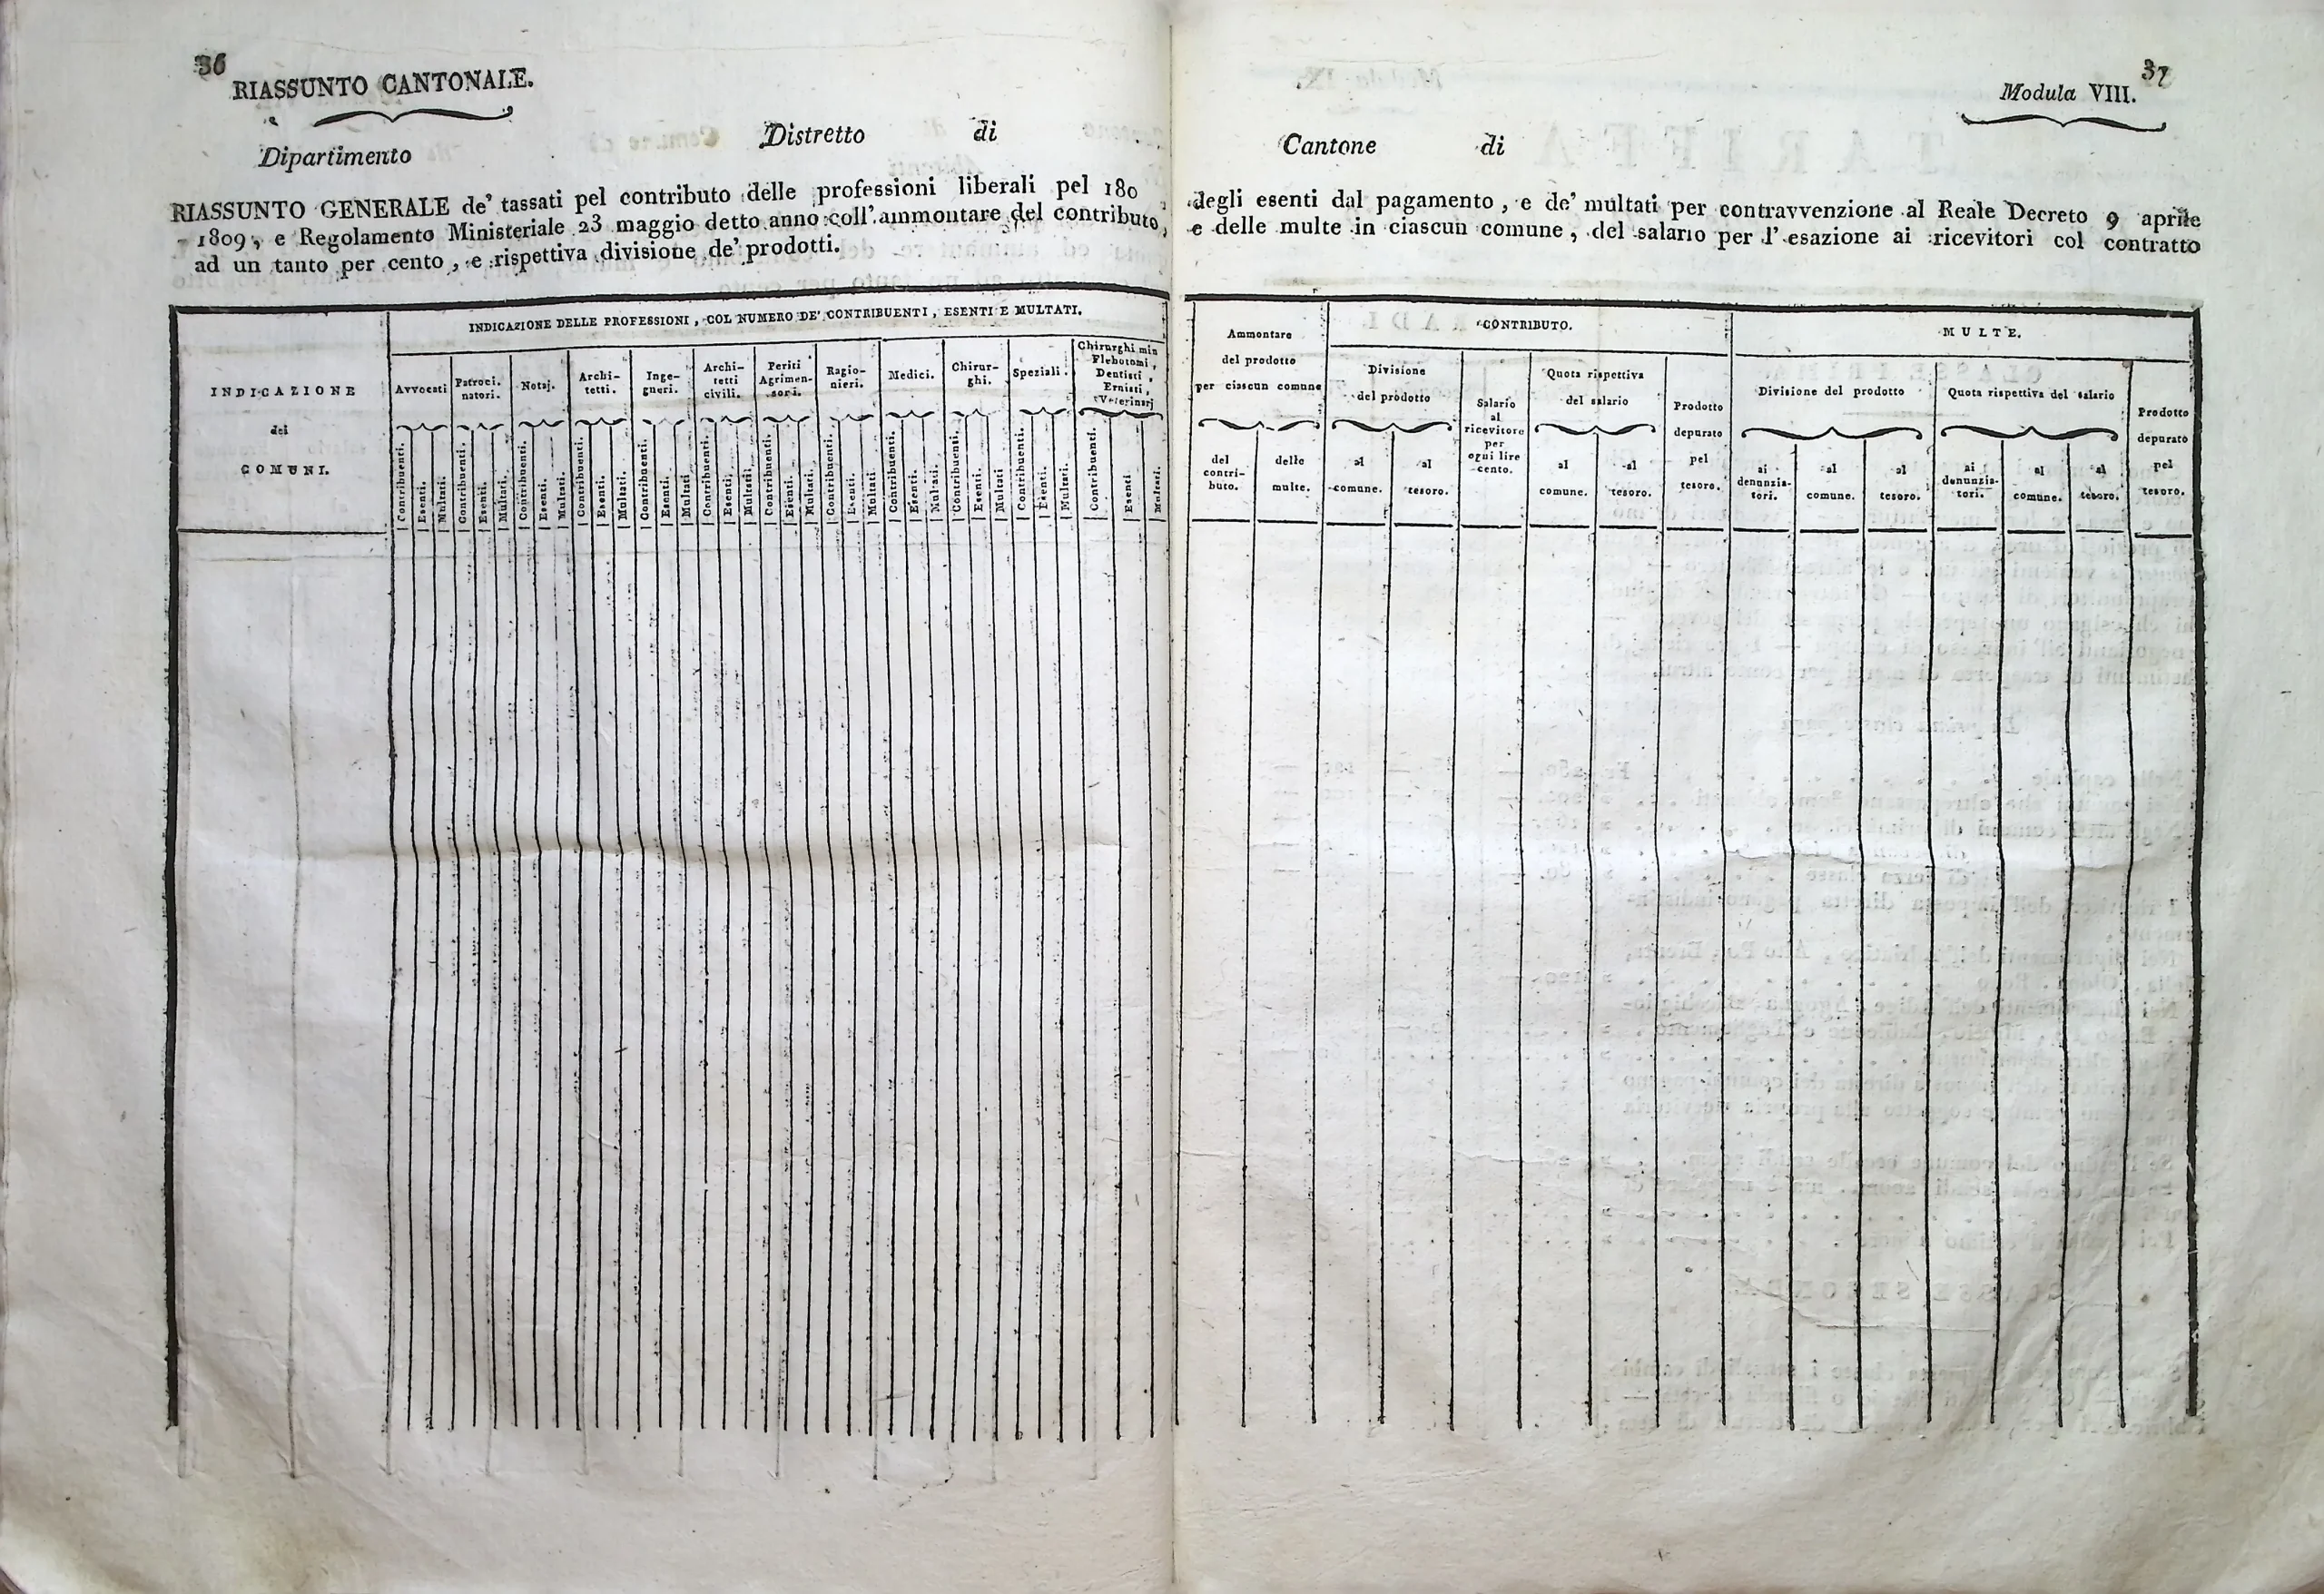 36
RIASSUNTO CANTONALE.
Dipartimento
Distretto di
RIASSUNTO GENERALE de' tassati pel contributo delle professioni liberali pel 180 ,
1809, e Regolamento Ministeriale 23 maggio detto anno coll' ammontare del contributo,
ad un tanto per cento, e rispettiva divisione de' prodotti.
INDICAZIONE
dei
COMUNI.
INDICAZIONE DELLE PROFESSIONI, COL NUMERO DE' CONTRIBUENTI, ESENTI E MULTATI.
Avvocati
Contribuenti.
Esenti.
Multati.
Patroci-
natori.
Contribuenti.
Esenti.
Multati.
Notaj.
Contribuenti.
Esenti.
Multati.
Archi-
tetti.
Contribuenti.
Esenti.
Multati.
Inge-
gneri.
Contribuenti.
Esenti.
Multati
Archi-
tetti
civili.
Contribuenti.
Esenti.
Multati.
Periti
Agrimen-
sori.
Contribuenti.
Esenti.
Multati.
Ragio-
nieri.
Contribuenti.
Esenti.
Multati
Medici.
Contribuenti.
Esenti.
Multati.
Chirur-
ghi.
Contribuenti.
Esenti.
Multati
Speziali.
Contribuenti.
Esenti.
Multati.
Chirurghi min
Flebotomi,
Dentisti,
Ernisti,
Veterinarj
Contribuenti.
Esenti
Multati.
37
Modula VIII.
Cantone di
degli esenti dal pagamento, e de' multati per contravvenzione al Reale Decreto 9 aprile
e delle multe in ciascun comune, del salario per l' esazione ai ricevitori col contratto
Ammontare
del prodotto
per ciascun comune
del
contri-
buto.
delle
multe.
CONTRIBUTO.
Divisione
del prodotto
al
comune.
al
tesoro.
Salario
al
ricevitore
per
ogni lire
cento.
Quota rispettiva
del salario
al
comune.
al
tesoro.
Prodotto
depurato
pel
tesoro.
MULTE.
Divisione del prodotto
ai
denunzia-
tori.
al
comune.
al
tesoro.
Quota rispettiva del salario
ai
denunzia-
tori.
al
comune.
al
tesoro.
Prodotto
depurato
pel
tesoro.